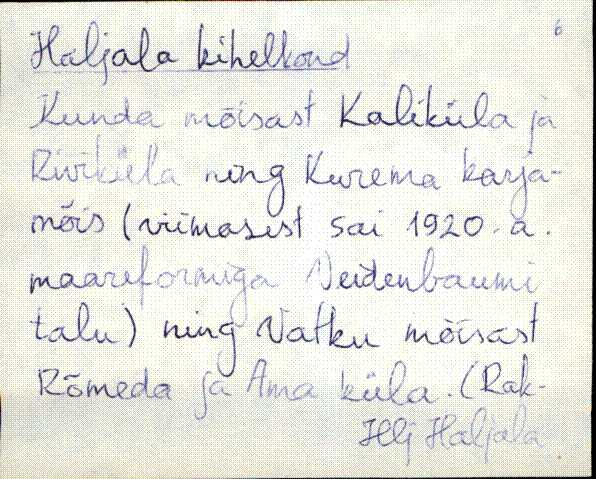 6
Haljala kihelkond
Kunda mõisast Kaliküla ja
Riviküla ning Kurema karja-
mõis (viimasest sai 1920. a.
maareformiga Veidenbaumi
talu) ning Vatku mõisast
Rõmeda ja Ama küla. (Rak-
Hlj Haljala